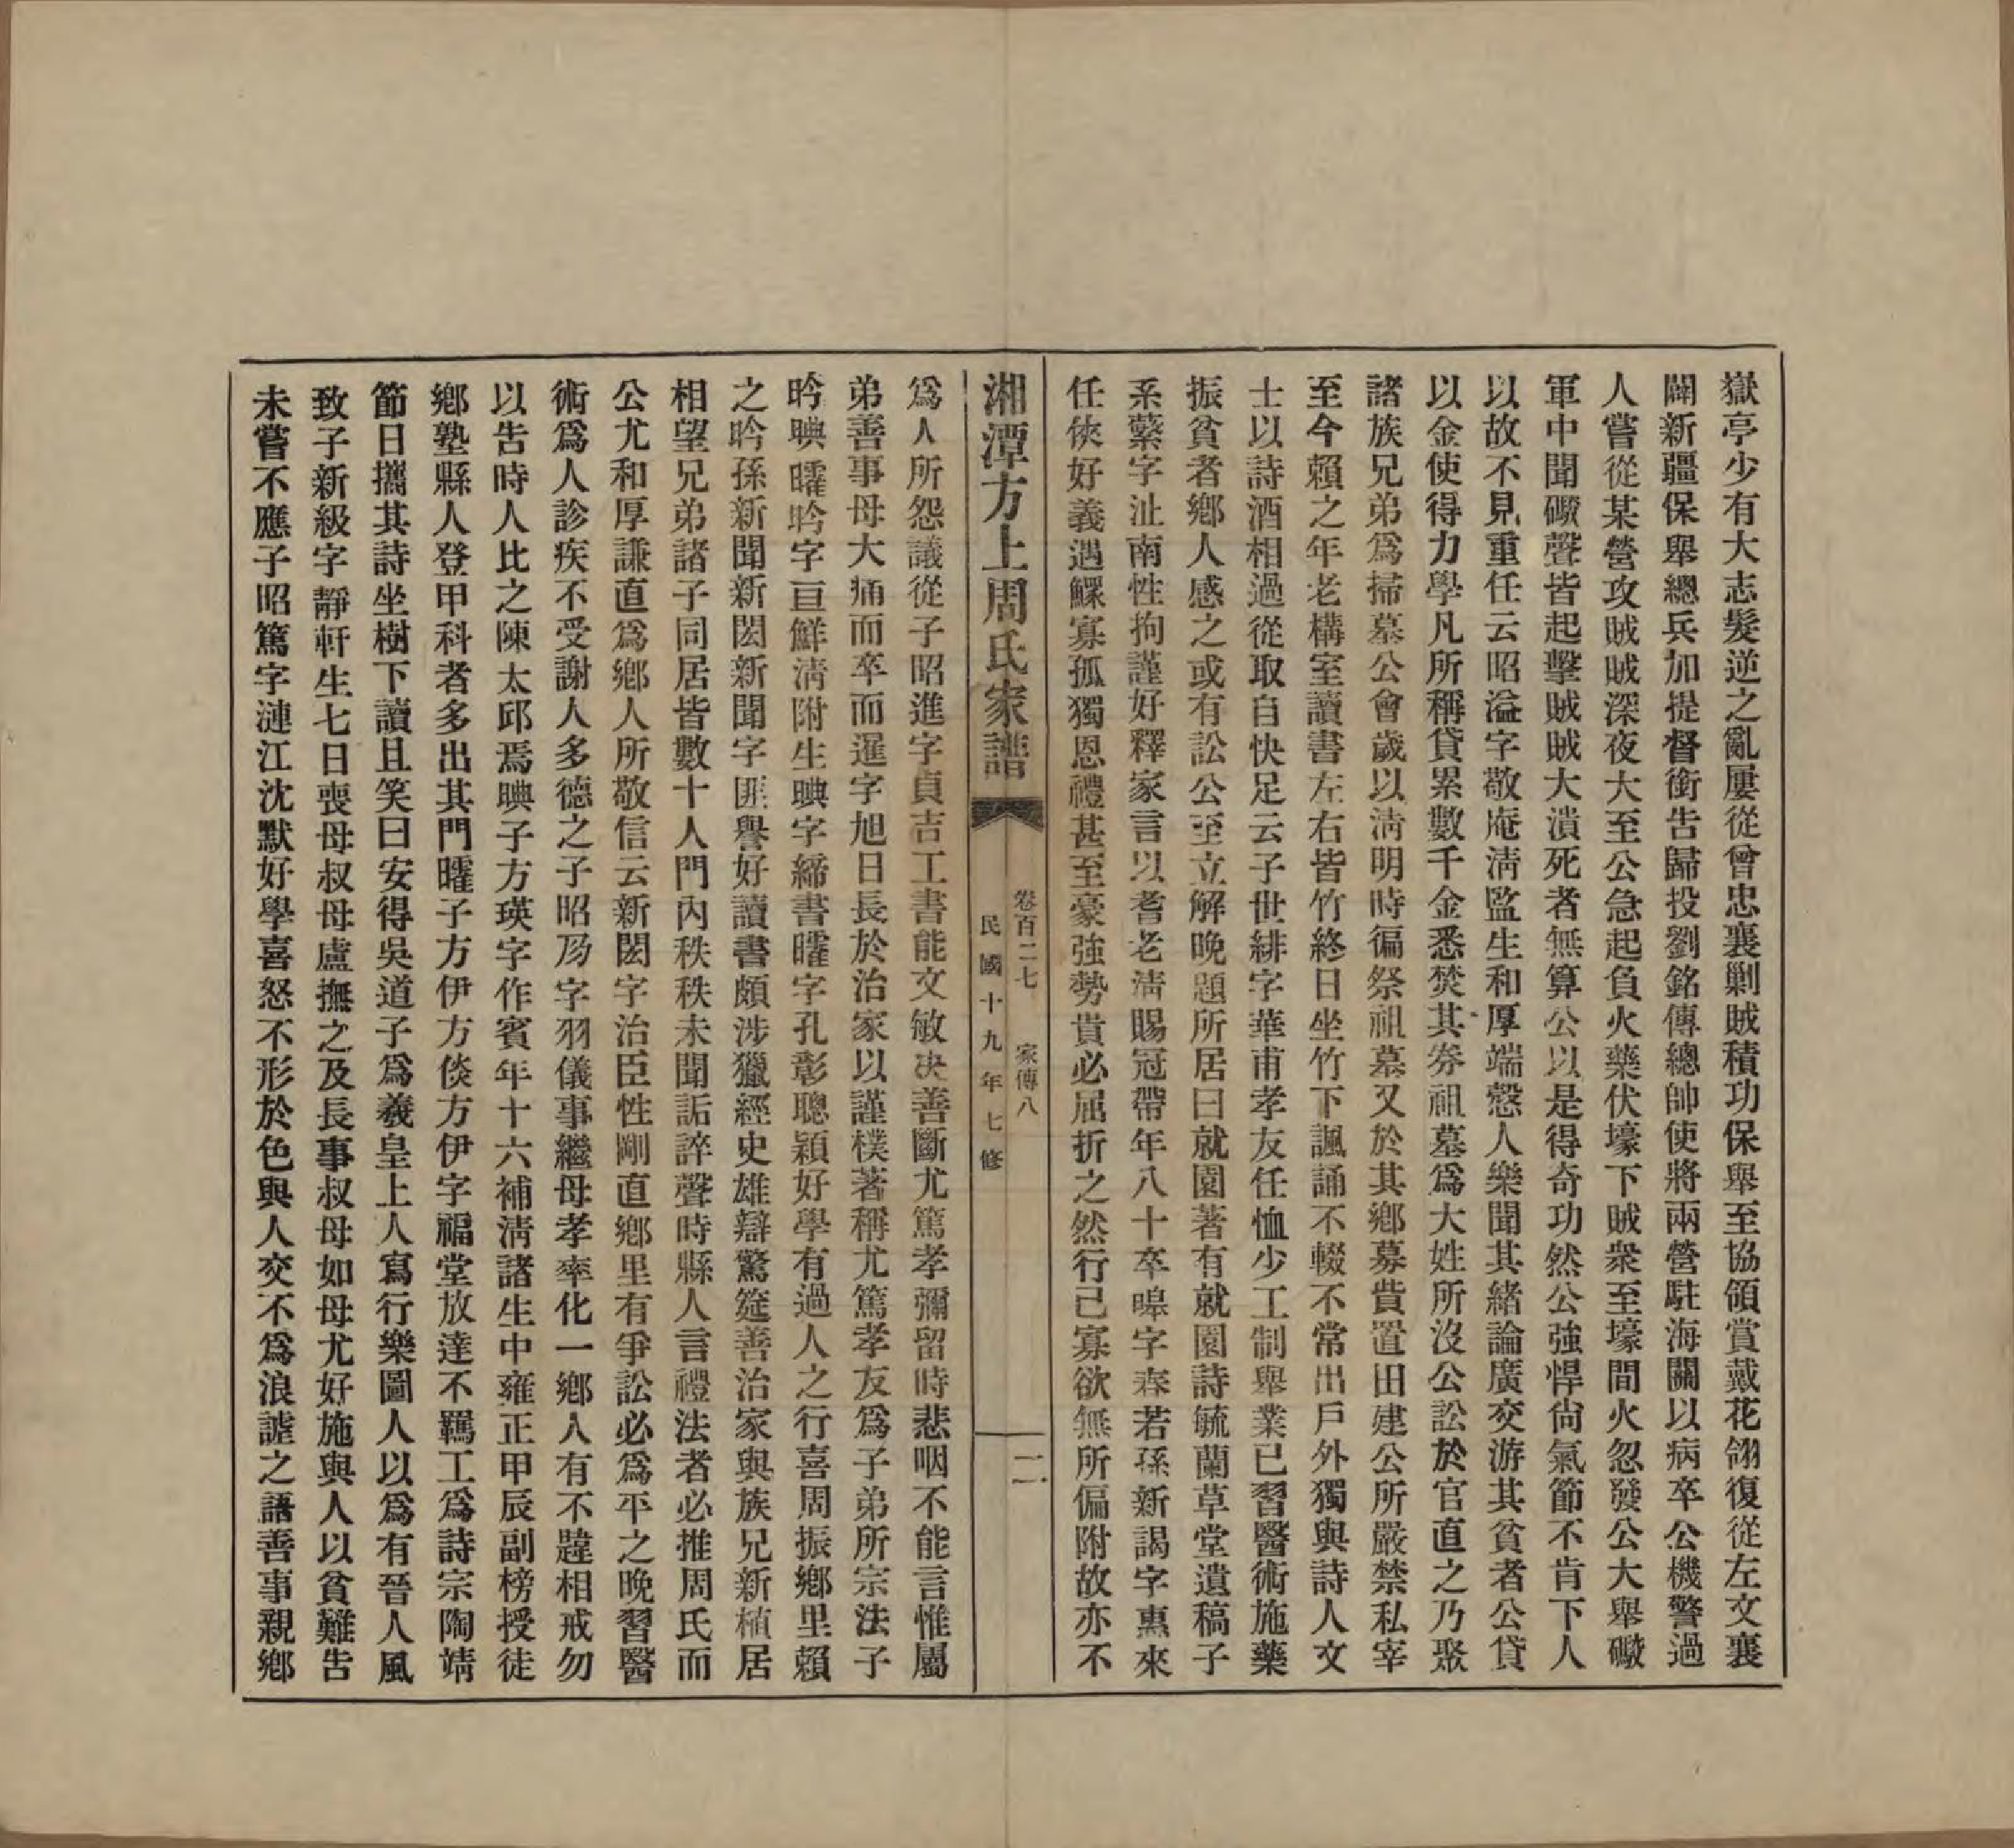 嶽亭少有大志髮逆之亂屢從曾忠襄剿賊積功保舉至協領賞戴花翎復從左文襄
闢新疆保舉總兵加提督銜告歸投劉銘傳總帥使將兩營駐海關以病卒公機警過
人嘗從某營攻賊賊深夜大至公急起負火藥伏壕下賊衆至壕間火忽發公大舉礮
軍中聞礮聲皆起擊賊賊大潰死者無算公以是得奇功然公強悍尙氣節不肯下人
以故不見重任云昭溢字敬庵淸監生和厚端慤人樂聞其緒論廣交游其貧者公貸
以金使得力學凡所稱貸累數千金悉焚其券祖墓爲大姓所沒公訟於官直之乃聚
諸族兄弟爲掃墓公會歲以淸明時徧祭祖墓又於其鄕募貲置田建公所嚴禁私宰
至今賴之年老構室讀書左右皆竹終日坐竹下諷誦不輟不常出戶外獨與詩人文
士以詩酒相過從取自快足云子世緋字華甫孝友任恤少工制舉業已習醫術施藥
振貧者鄕人感之或有訟公至立解晚題所居曰就園著有就園詩毓蘭草堂遺稿子
系蘩字沚南性拘謹好釋家言以耆老淸賜冠帶年八十卒暤字春若孫新謁字熏來
任俠好義遇鰥寡孤獨恩禮甚至豪強勢貴必屈折之然行己寡欲無所偏附故亦不
湘潭方上周氏家譜
卷百二七 家傳八
二
民國十九年七修
爲人所怨議從子昭進字貞吉工書能文敏決善斷尤篤孝彌留時悲咽不能言惟屬
弟善事母大痛而卒而暹字旭日長於治家以謹樸著稱尤篤孝友爲子弟所宗法子
昑晪曤昑字亘鮮淸附生晪字締書曤字孔彰聰穎好學有過人之行喜周振鄕里賴
之昑孫新聞新閎新聞字匪譽好讀書頗涉獵經史雄辯驚筵善治家與族兄新植居
相望兄弟諸子同居皆數十人門內秩秩未聞詬誶聲時縣人言禮法者必推周氏而
公尤和厚謙直爲鄕人所敬信云新閎字治臣性剛直鄕里有爭訟必爲平之晚習醫
術爲人診疾不受謝人多德之子昭夃字羽儀事繼母孝率化一鄕人有不韙相戒勿
以告時人比之陳太邱焉晪子方瑛字作賓年十六補淸諸生中雍正甲辰副榜授徒
鄕塾縣人登甲科者多出其門曤子方伊方倓方伊字福堂放達不羈工爲詩宗陶靖
節日攜其詩坐樹下讀且笑曰安得吳道子爲羲皇上人寫行樂圖人以爲有晉人風
致子新級字靜軒生七日喪母叔母盧撫之及長事叔母如母尤好施與人以貧難吿
未嘗不應子昭篤字漣江沈默好學喜怒不形於色與人交不爲浪謔之語善事親鄕